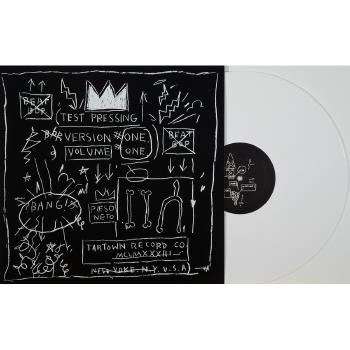 BEAT
BOP
TEST PRESSING
VERSION ONE
VOLUME ONE
BEAT
BOP
BANG!
PIESO
NETO
TARTOWN RECORD CO
MCMLXXXIII
NEW YORK N.Y. U.S.A